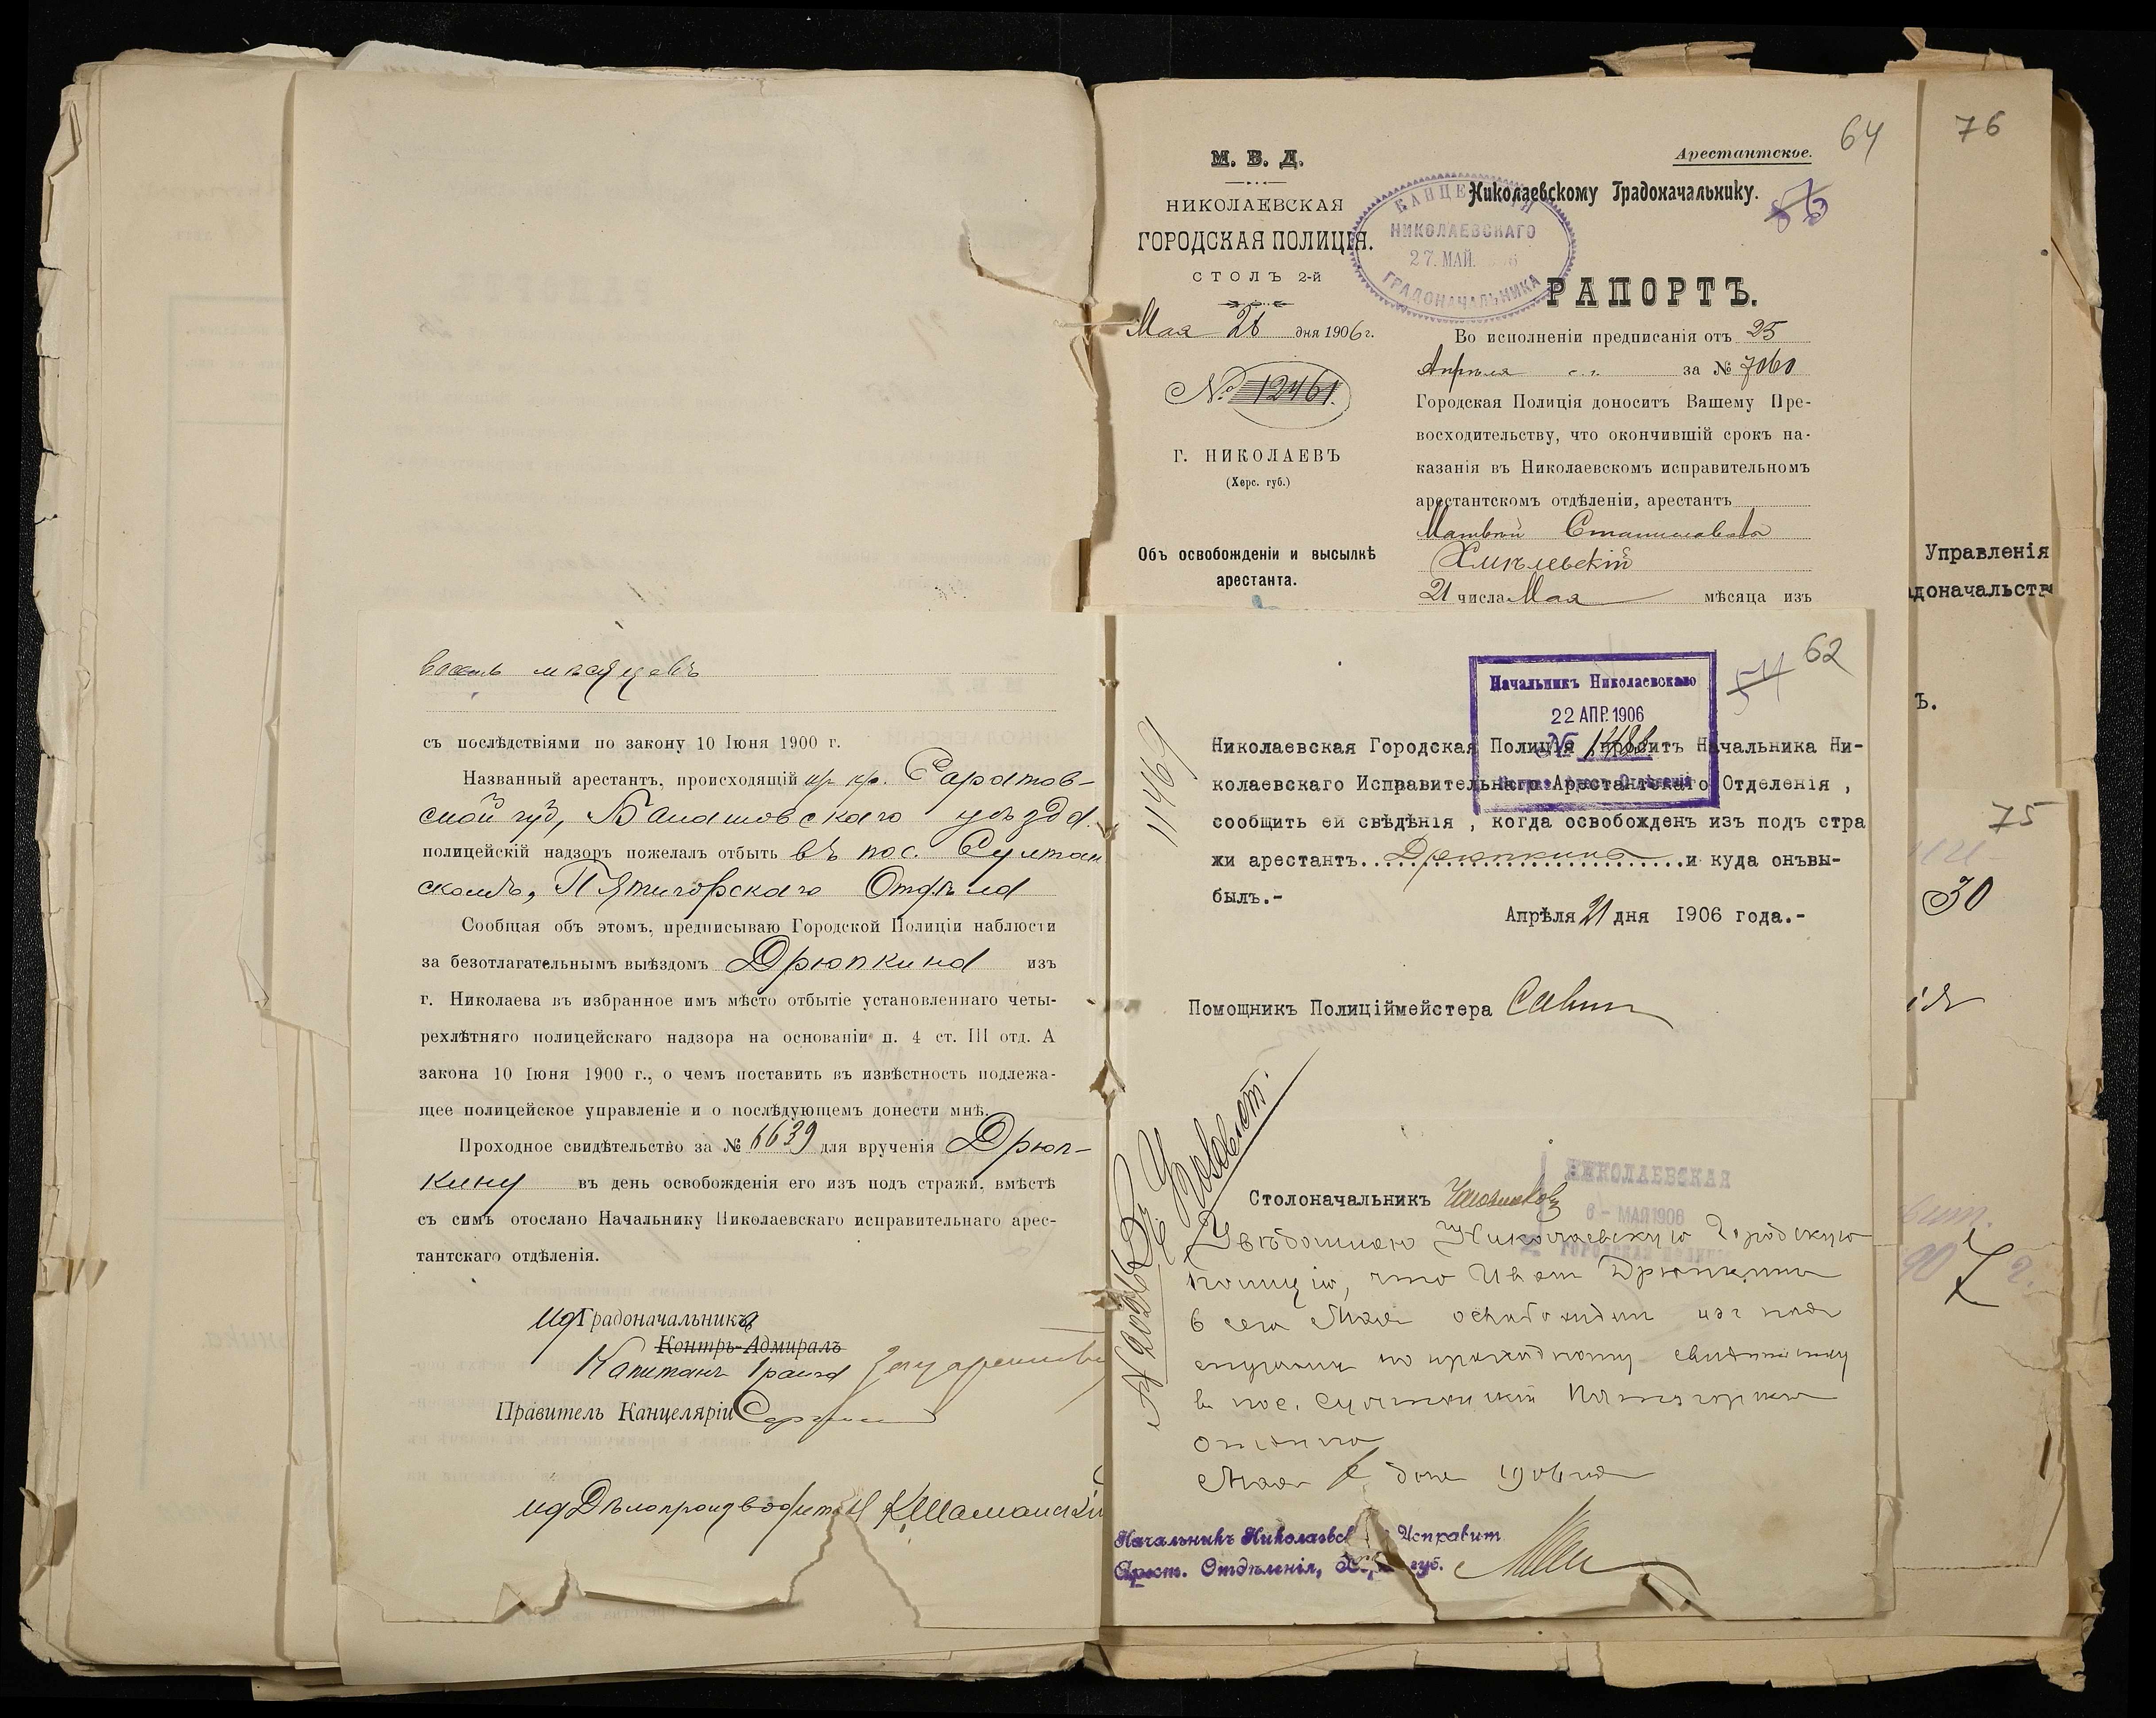 восемь мѣсяцевъ
съ послѣдствіями по закону 10 Іюня 1900 г.
Названный арестантъ, происходящій из кр. Саратов-
ской губ, Балашовскаго уѣзда.
полицейскій надзоръ пожелалъ отбыть въ пос. Султан
скомъ, Пятигорскаго Отдѣла
Сообщая объ этомъ, предписываю Городской Полиціи наблюсти
за безотлагательнымъ выѣздомъ Дрюпкина изъ
г. Николаева въ избранное имъ мѣсто отбытіе установленнаго четы-
рехлѣтняго полицейскаго надзора на основаніи п. 4 ст. III отд. А
закона 10 Іюня 1900 г., о чемъ поставить въ извѣстность подлежа-
щее полицейское управленіе и о послѣдующемъ донести мнѣ.
Проходное свидѣтельство за № 6639 для врученія Дрюп-
кину въ день освобожденія его изъ подъ стражи, вмѣстѣ
съ симъ отослано Начальнику Николаевскаго исправительнаго арес-
тантскаго отдѣленія.
ИдГрадоначальника
Контръ-Адмиралъ
Капитанъ 1 ранга
Правитель Канцеляріи
ИдДѣлопроизводителя КШаманскій
64
М. В. Д.
НИКОЛАЕВСКАЯ
ГОРОДСКАЯ ПОЛИЦІЯ.
СТОЛЪ 2-й
Мая 26 дня 1906 г.
№ 12461.
Г. НИКОЛАЕВЪ
(Херс. губ.)
Объ освобожденіи и высылкѣ
арестанта.
Арестантское.
Николаевскому Градоначальнику.
КАНЦЕЛЯРІИ
НИКОЛАЕВСКАГО
27. МАЙ.
ГРАДОНАЧАЛЬНИКА
РАПОРТЪ.
Во исполненіи предписанія отъ 25
Апрѣля с. г. за № 7060
Городская Полиція доноситъ Вашему Пре-
восходительству, что окончившій срокъ на-
казанія въ Николаевскомъ исправительномъ
арестантскомъ отдѣленіи, арестантъ
Матвѣй Станиславовъ
Хмѣлевскій
21 числа Мая мѣсяца изъ
62
54
Начальникъ Николаевскаго
22 АПР. 1906
№ 1488
11469
Николаевская Городская Полиція проситъ Начальника Ни-
колаевскаго Исправительнаго Арестантскаго Отделенія ,
сообщить ей свѣдѣнія , когда освобожденъ изъ подъ стра
жи арестантъ Дрюпкинъ и куда онъвы-
былъ.-
Апрѣля 21 дня 1906 года.-
Помощникъ Полиціймейстера Савин
Столоначальникъ
НИКОЛАЕВСКАЯ
6 - МАЯ 1906
ГОРОДСКАЯ ПОЛИЦІЯ
Увѣдомляю Николаевскую Городскую
Полицію, что Иван Дрюпкинъ
6 сего Мая освобожден изъ подъ
стражи по проходному свидѣтельству
в пос. Султанскій Пятигорскаго
отдѣла
Мая 6 дня 1906 года
Начальникъ Николаевск Исправит
Арест. Отдѣленія, Х. губ.
76
Управленія
адоначальства
ъ.
75
30
ія